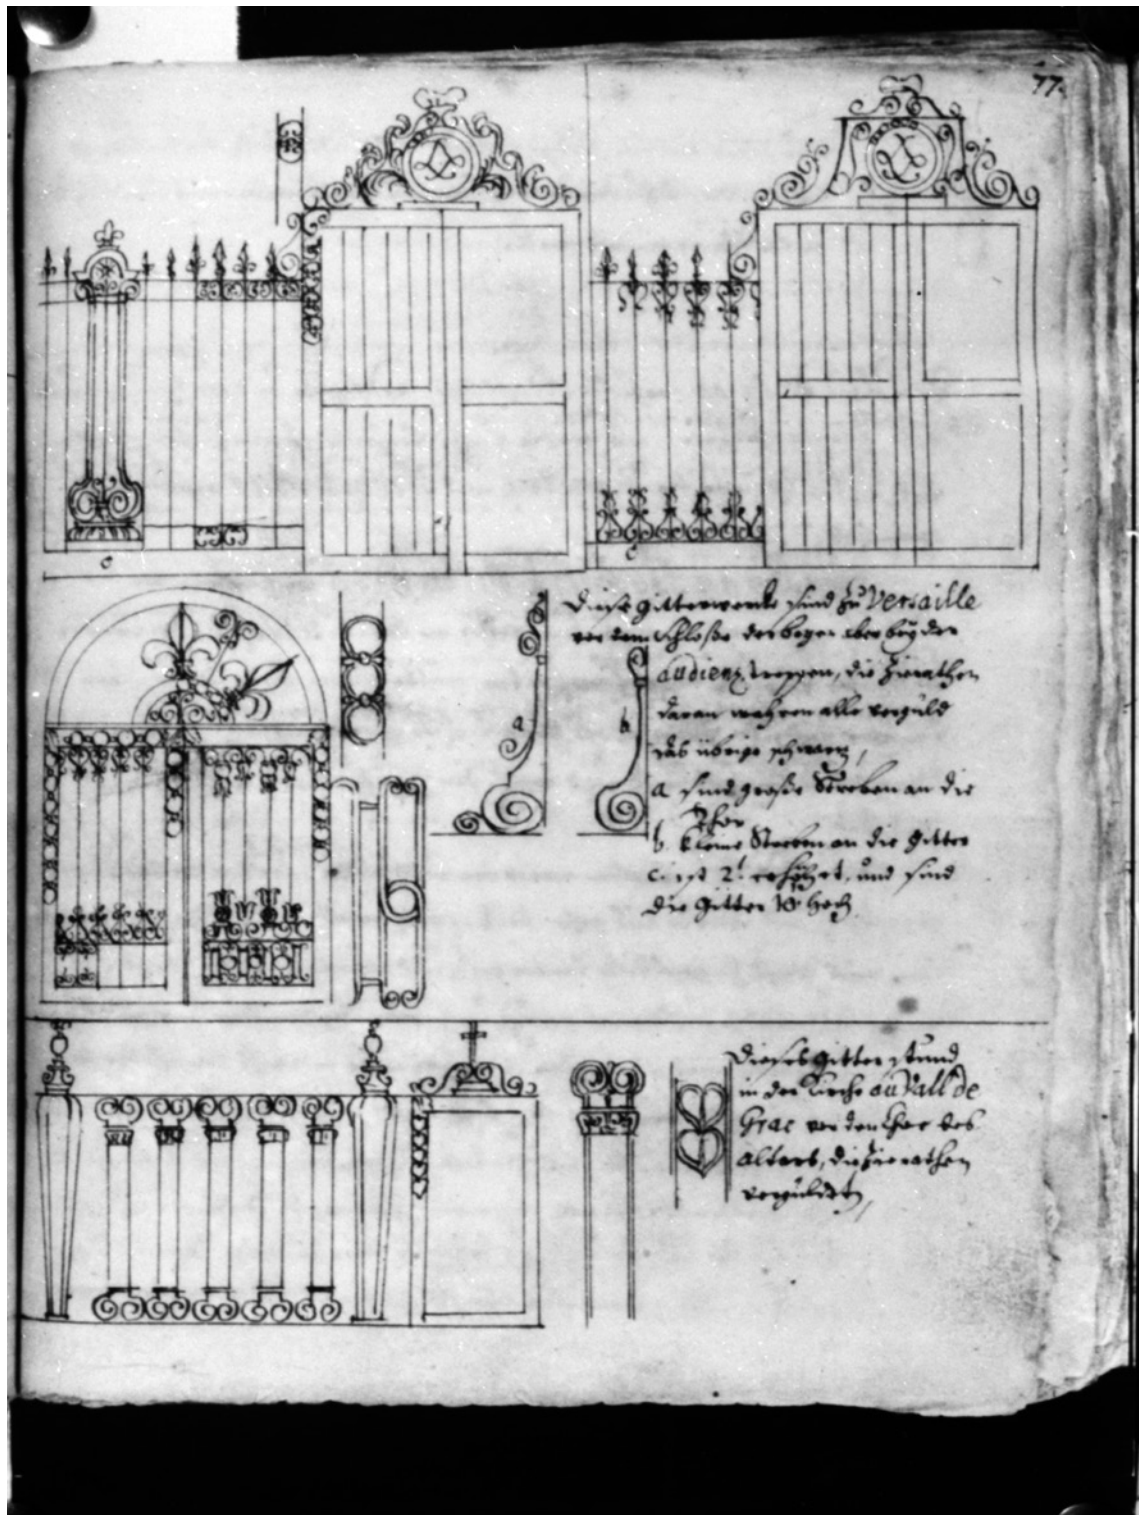 77.
c
c
Diese gitterwercke sind zu Versaille
vor dem Schloße der bogen aber beÿ der
audienz treppen, die Zierathen
daran wahren alle vergüld
das übrige schwarz,
a
b
a sind große Streben an die
Thor
b. kleine Streben an die gitter
c ist 2' erhöhet, und sind
die gitter hoch
Dieses gitter stund
in der Kirche au Vall de
Grac vor den Chor des
altars, die Zierathen
vergüldet,